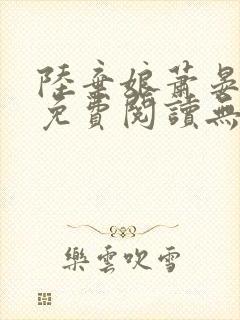 陸棄娘蕭晏
免費閱讀無
樂雲吹雪